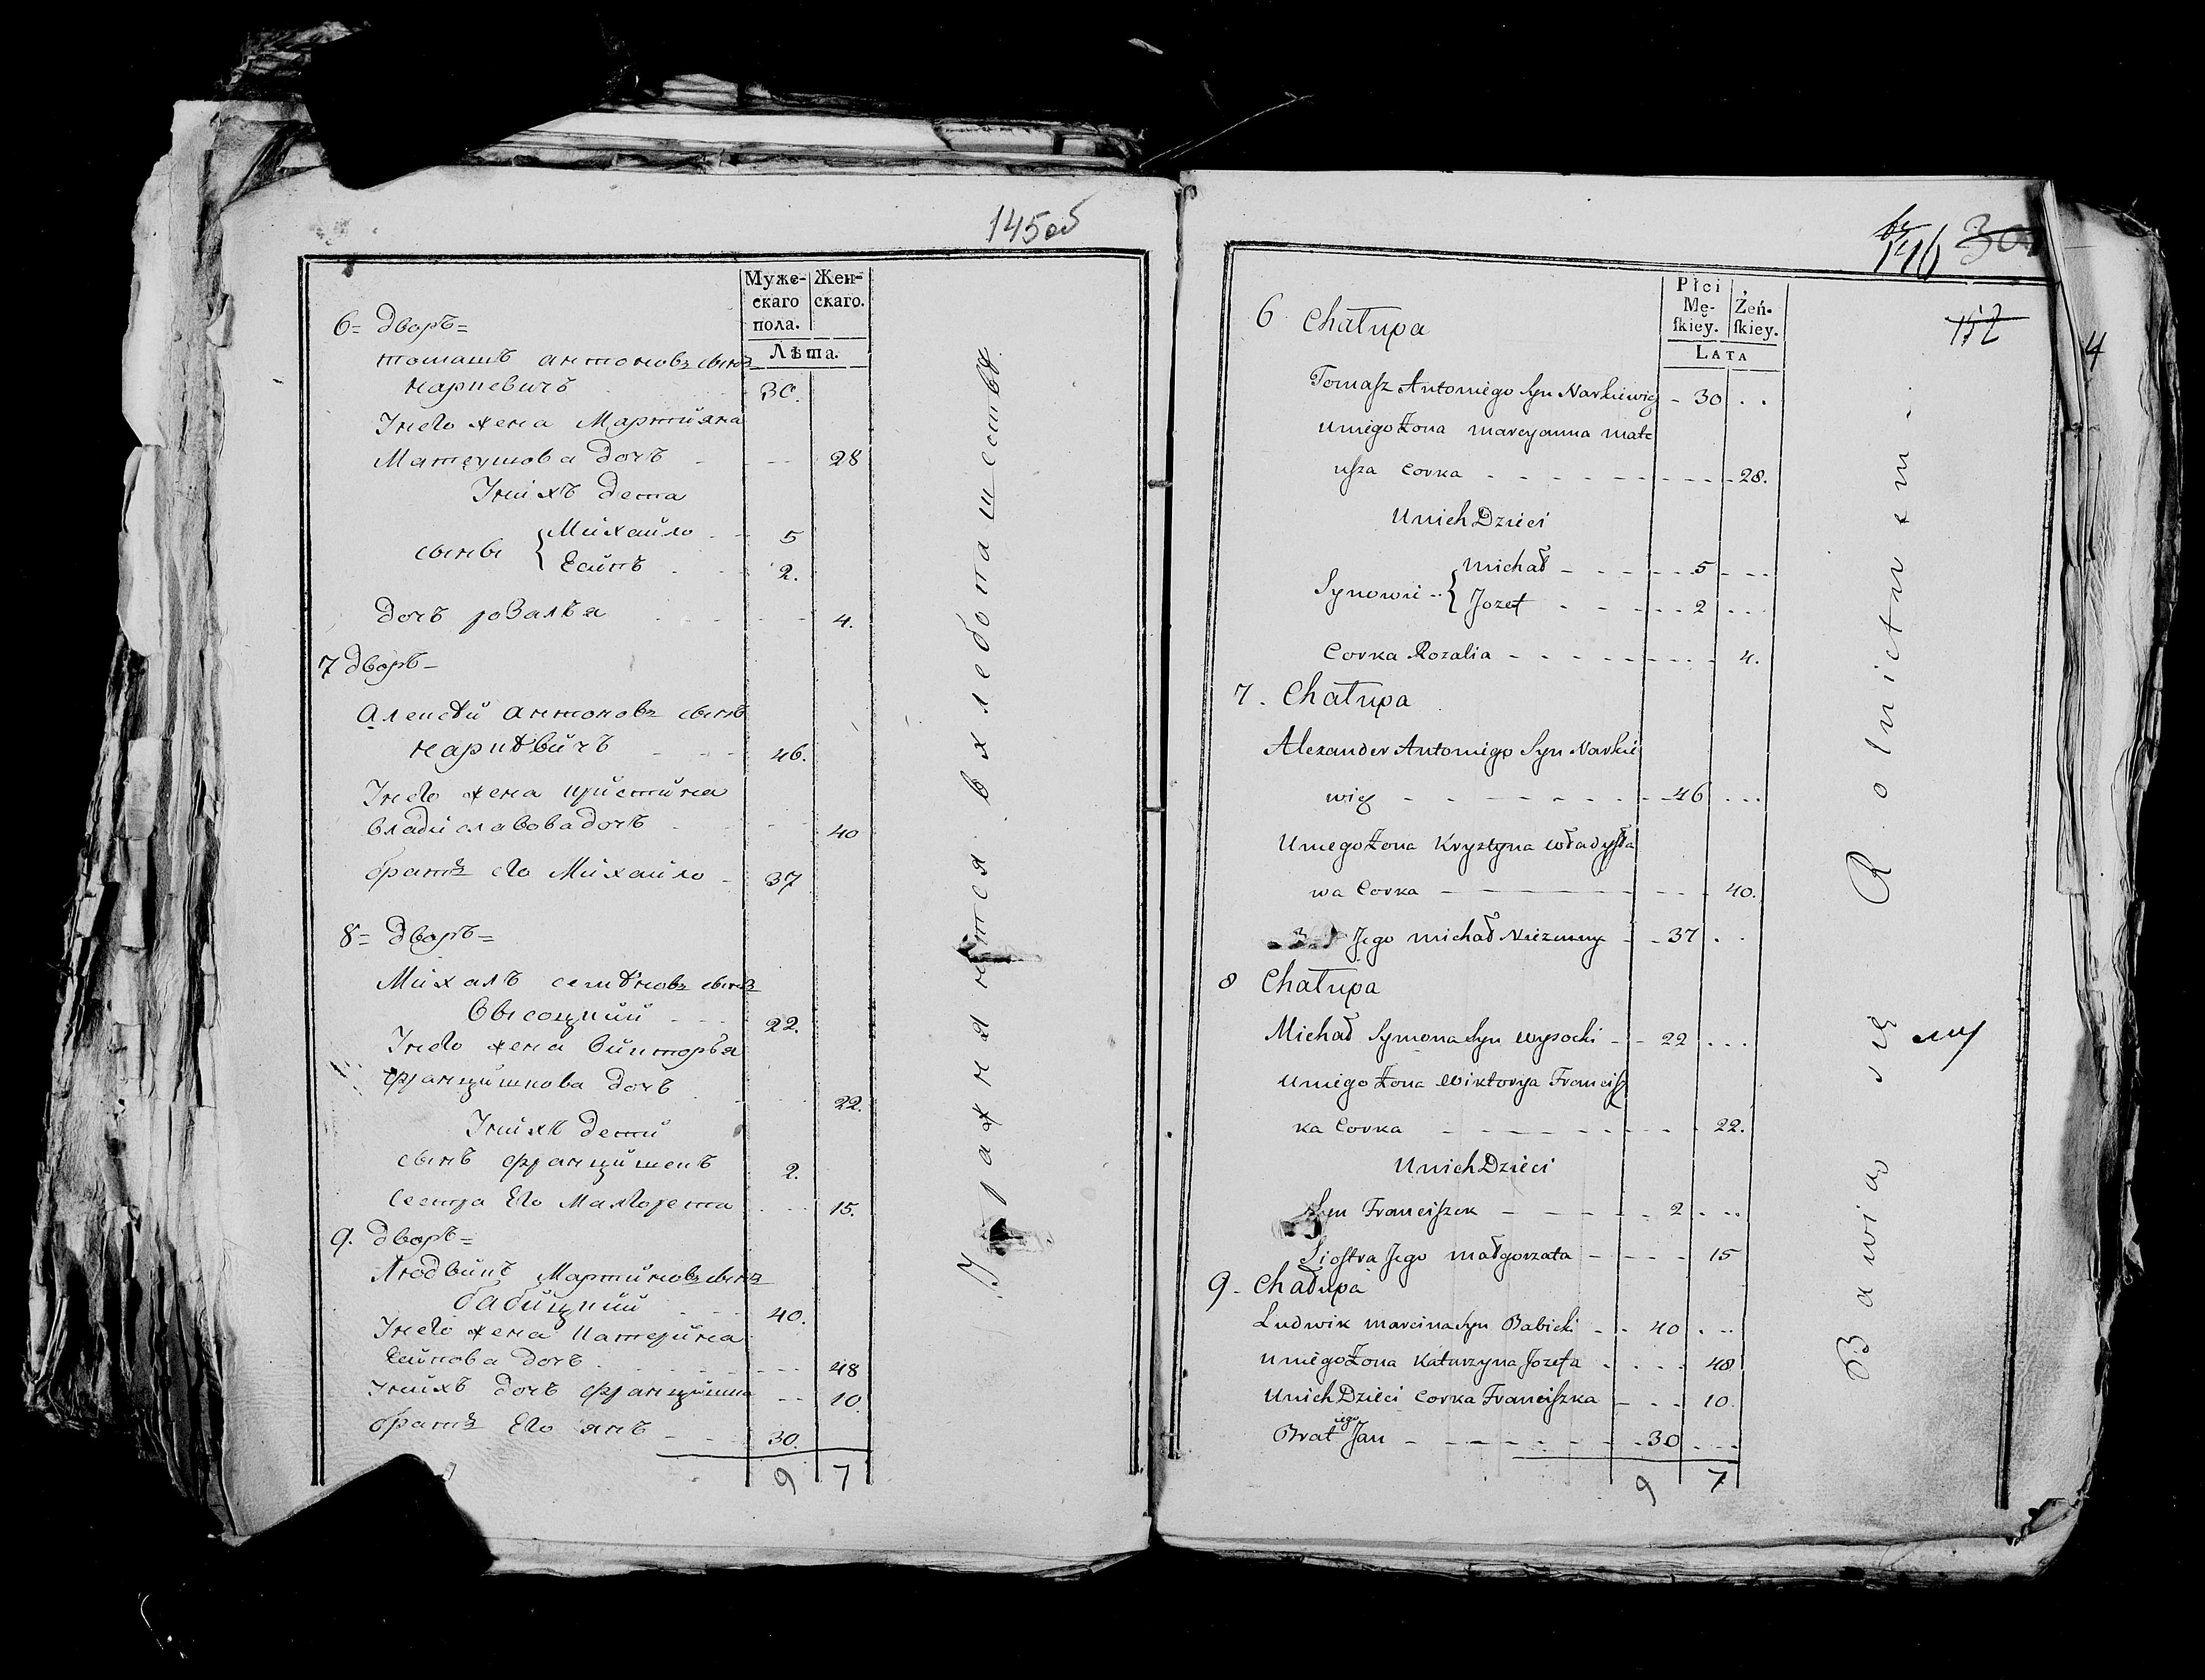 145об
Муже- Жен-
скаго скаго.
пола.
Лѣта.
6= дворъ=
томашъ антоновъ сынъ
наркевичъ 30.
У него жена Мартияна
Матеушова дочъ 28
У нихъ дети
сыны { Михайло 5
Есипъ 2.
дочъ розалья 4.
7 дворъ=
Алексѣй антоновъ сынъ
наркѣвичъ 46.
У него жена кристина
владиславова дочъ 40
братъ его Михайло 37
8= дворъ=
Михалъ семѣновъ сынъ
Высоцкий 22.
У него жена викторья
францишкова дочъ 22.
У нихъ дети
сынъ францишекъ 2.
сестра Его Малгорета 15.
9. дворъ=
Людвикъ Мартиновъ сынъ
бабицкий 40.
У него жена катерина
Есипова дочъ 48
У нихъ дочъ францишка 10.
братъ Его янъ 30.
9 7
упражняются в хлебопашестве
146 30
152
4
Płci
Mę- Żeń-
ſkiey. ſkiey.
LATA
6 Chałupa
Tomaſz Antoniego Syn Narkiewicz 30
U niego Żona Marcyanna Mate
uſza Corka 28.
U nich Dzieci
Synowie { Michał 5
Jozef 2
Corka Rozalia 4.
7. Chałupa
Alexander Antoniego Syn Narkie
wicz 46
U niego Żona Krystyna Władysła
wa Corka 40.
Jego Michał Nieżenny 37
8 Chałupa
Michał Symona Syn Wysocki 22
U niego Żona Wiktorya Franciſz
ka Corka 22.
U nich Dzieci
Syn Franciſzek 2
Sioſtra Jego Małgorzata 15
9. Chałupa
Ludwik Marcina Syn Babicki 40
U niego Żona Katarzyna Jozefa 48
U nich Dzieci Corka Franciſzka 10.
Brat iego Jan 30
9 7
Bawią się Rolnictwem.